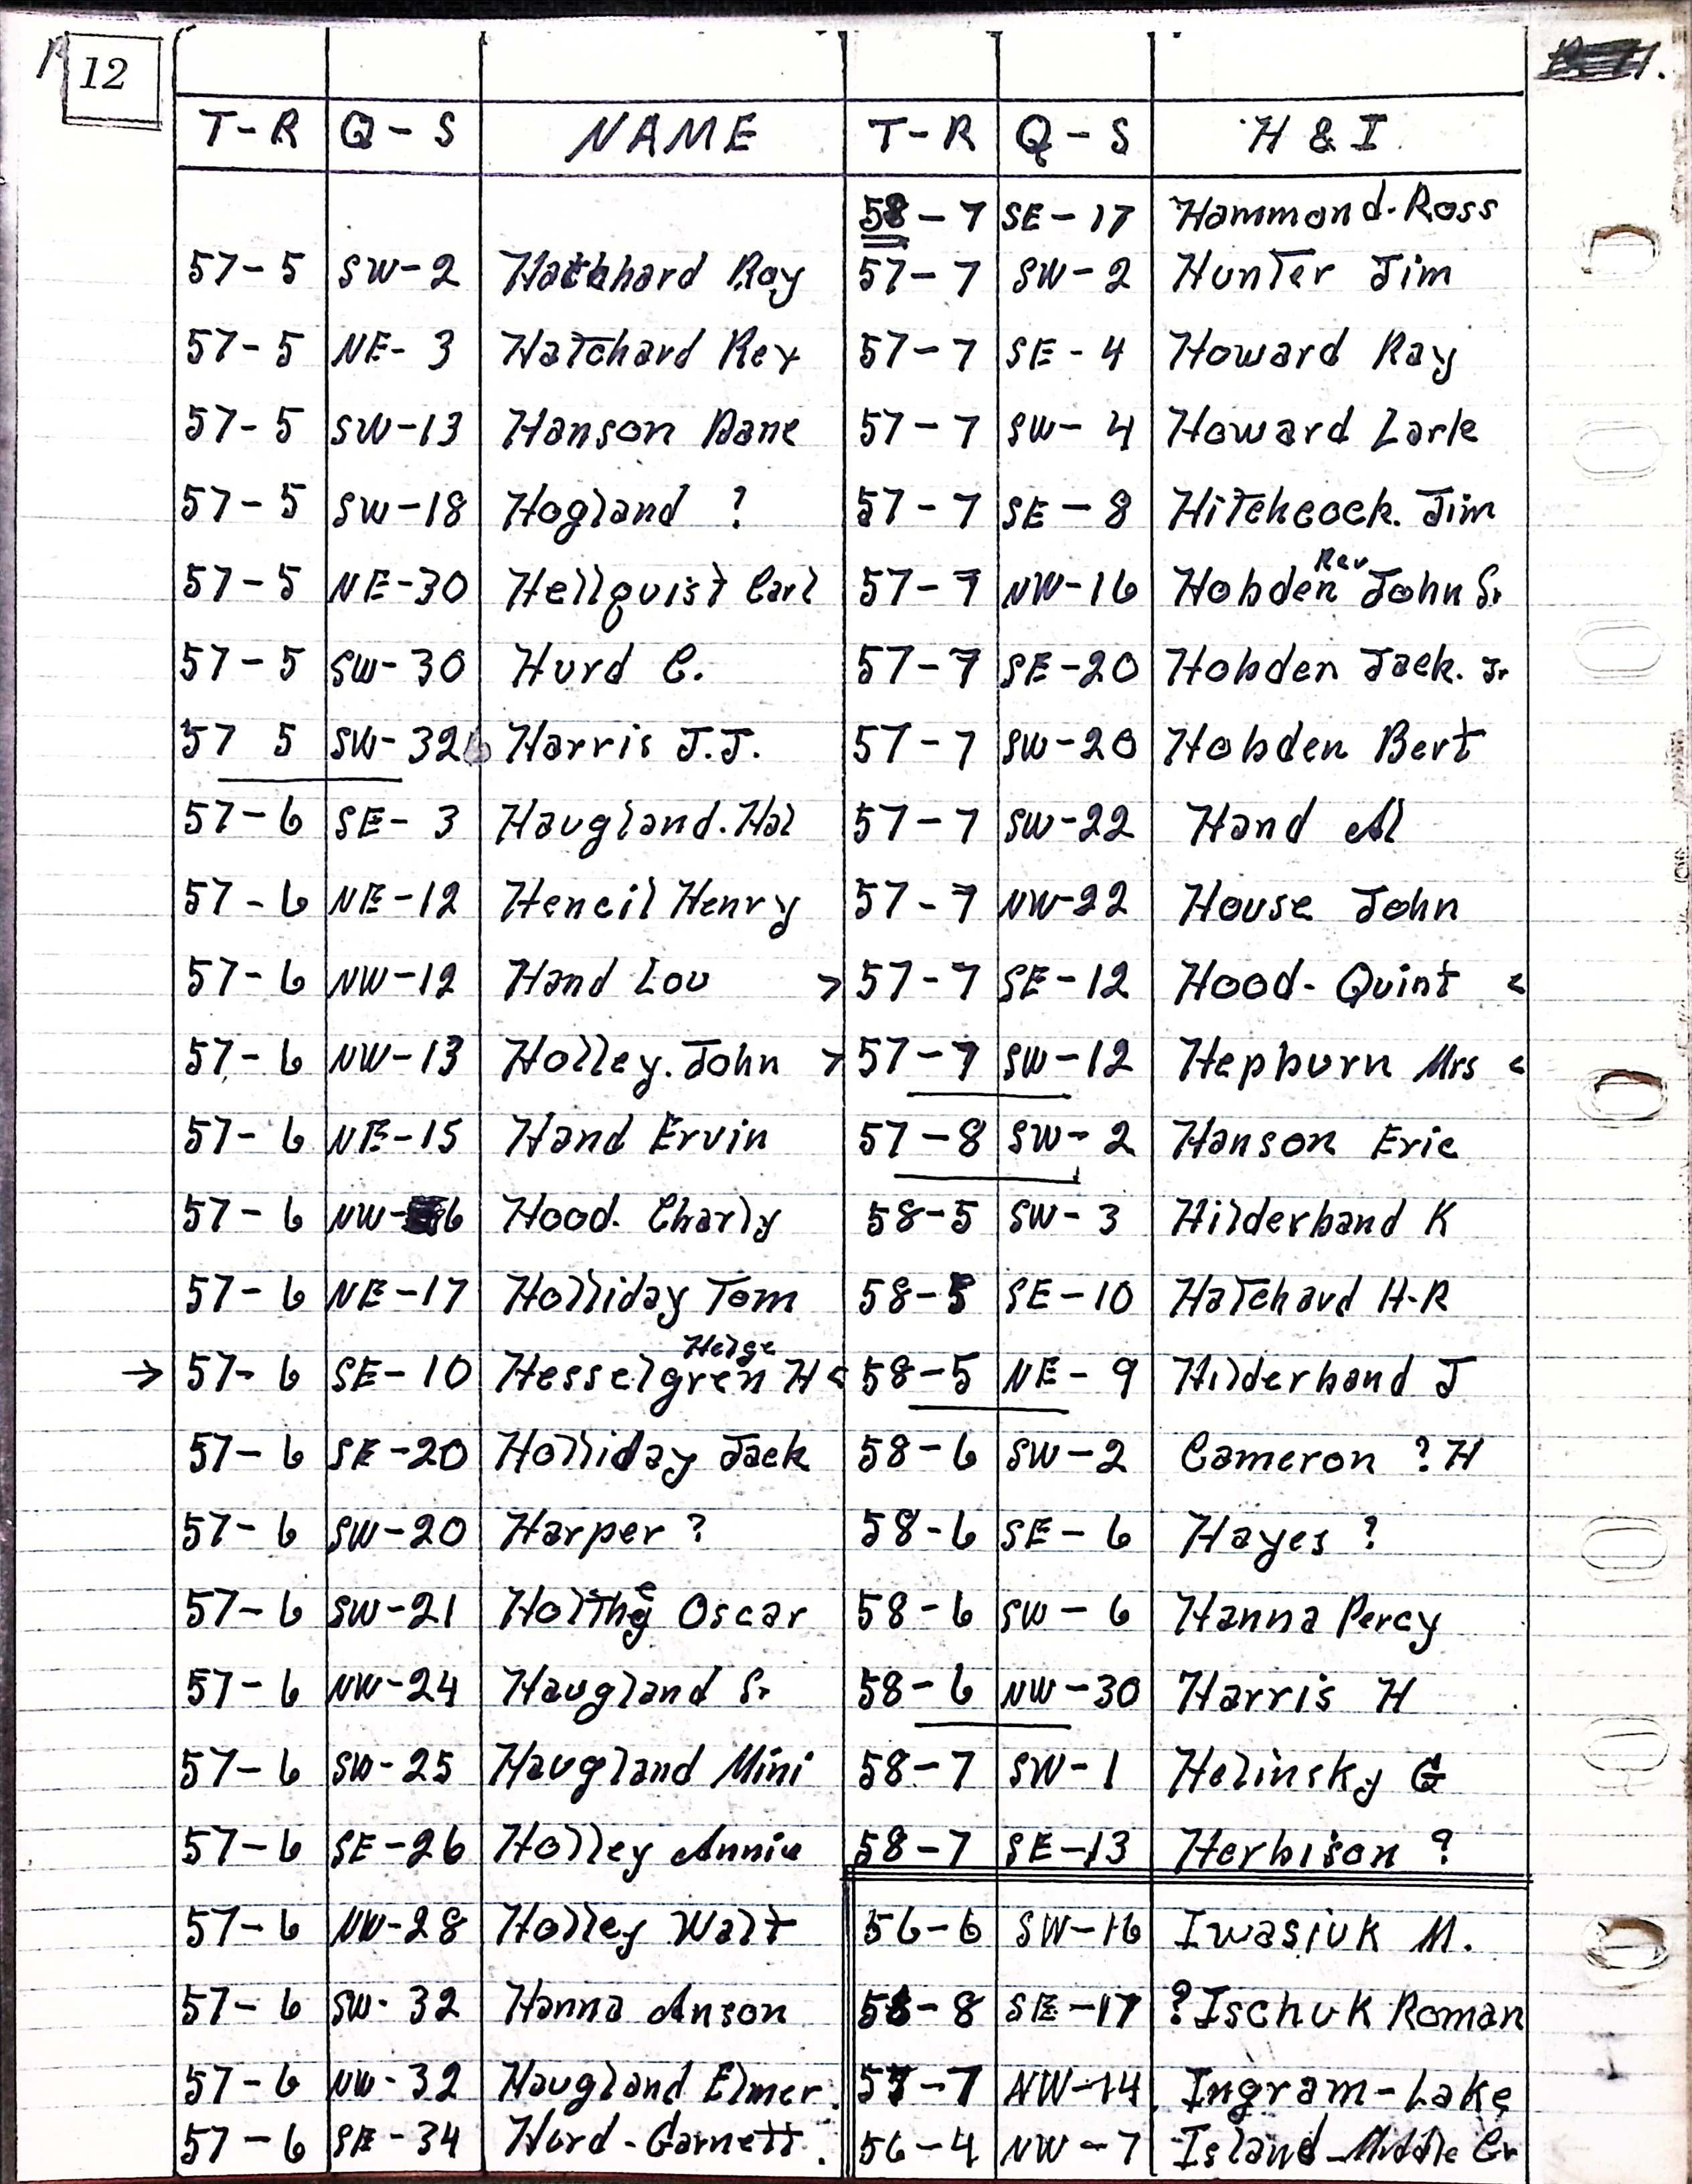 12
T-R Q-S NAME T-R Q-S H & I
58-7 SE-17 Hammond-Ross
57-5 SW-2 Hatchard Roy 57-7 SW-2 Hunter Jim
57-5 NE-3 Hatchard Rex 57-7 SE-4 Howard Ray
57-5 SW-13 Hanson Dane 57-7 SW-4 Howard Earle
57-5 SW-18 Hogland ? 57-7 SE-8 Hitchcock. Jim
57-5 NE-30 Hellquist Carl 57-7 NW-16 Hobden Rev John Sr
57-5 SW-30 Hurd C. 57-7 SE-20 Hobden Jack. Jr
57 5 SW-32 Harris J.J. 57-7 SW-20 Hobden Bert
57-6 SE-3 Haugland. Hal 57-7 SW-22 Hand Al
57-6 NE-12 Hencil Henry 57-7 NW-22 House John
57-6 NW-12 Hand Lou > 57-7 SE-12 Hood-Quint <
57-6 NW-13 Holley. John > 57-7 SW-12 Hepburn Mrs <
57-6 NE-15 Hand Ervin 57-8 SW-2 Hanson Eric
57-6 NW-16 Hood. Charly 58-5 SW-3 Hilderband K
57-6 NE-17 Holliday Tom 58-5 SE-10 Hatchard H-R
→ 57-6 SE-10 Hesselgren Helge H < 58-5 NE-9 Hilderband J
57-6 SE-20 Holliday Jack 58-6 SW-2 Cameron ? H
57-6 SW-20 Harper ? 58-6 SE-6 Hayes ?
57-6 SW-21 Holthe Oscar 58-6 SW-6 Hanna Percy
57-6 NW-24 Haugland Sr 58-6 NW-30 Harris H
57-6 SW-25 Haugland Mini 58-7 SW-1 Helinsky G
57-6 SE-26 Holley Annie 58-7 SE-13 Herbison ?
57-6 NW-28 Holley Walt 56-6 SW-16 Iwasiuk M.
57-6 SW-32 Hanna Anson 58-8 SE-17 ?Ischuk Roman
57-6 NW-32 Haugland Elmer. 57-7 NW-14 Ingram-Lake
57-6 SE-34 Hurd-Garnett. 56-4 NW-7 Island-Middle Cr